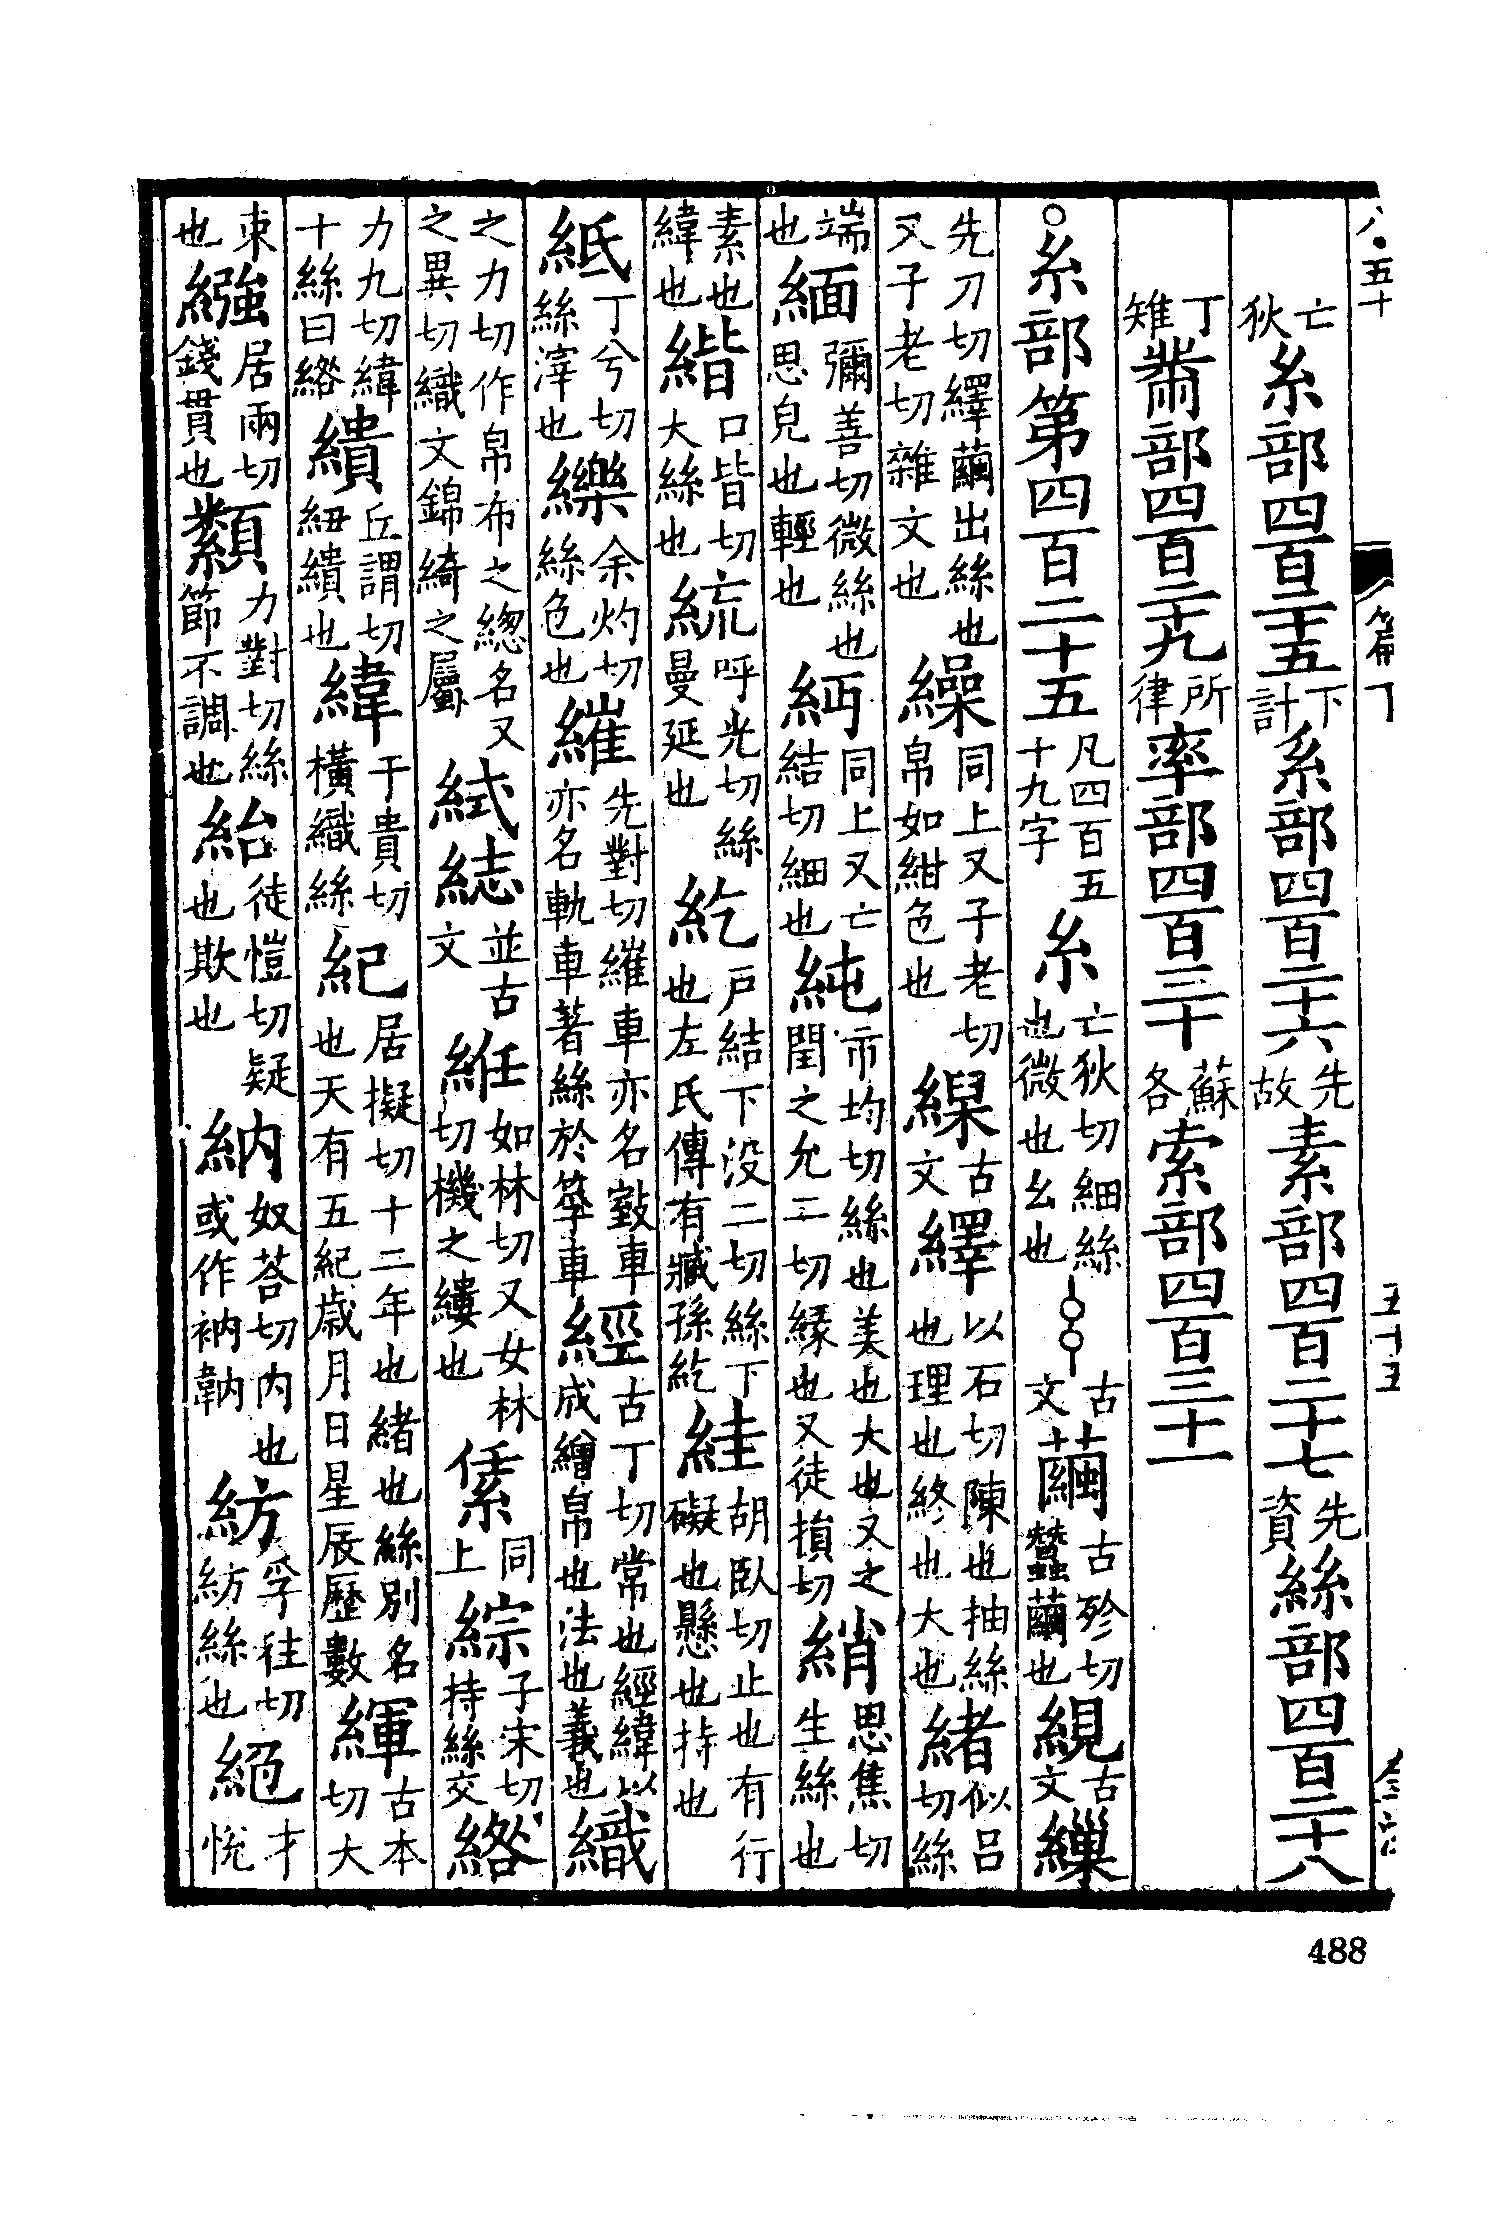 八·五十 篇下 五十五
亡狄糸部四百二十五下計系部四百二十六先故素部四百二十七先資絲部四百二十八
丁雉黹部四百二十九所律率部四百三十蘇各索部四百三十一
○糸部第四百二十五凡四百五十九字糸亡狄切細絲也微也幺也古文繭古殄切蠶繭也絸古文繅
先刀切繹繭出絲也又子老切雜文也繰同上又子老切帛如紺色也古文繹以石切陳也抽絲也理也終也大也緒似呂切絲
端也緬彌善切微絲也思皃也輕也䋛同上又亡結切細也純市均切絲也美也大也又之閏之允二切緣也又徒損切綃思焦切生絲也
素也緯也口皆切大絲也呼光切絲曼延也紇戶結下没二切絲下也左氏傳有臧孫紇絓胡卧切止也有行礙也懸也持也
丁兮切絲滓也纅余灼切絲色也繀先對切繀車亦名車亦名軌車著絲於筟車經古丁切常也經緯以成繒帛也法也義也織
之力切作帛布之緫名又之異切織文錦綺之屬並古文絍如林切又女林切機之縷也同上綜子宋切持絲交綹
力九切緯十絲曰綹繢丘謂切紐繢也緯于貴切橫織絲紀居擬切十二年也緒也絲別名也天有五紀歲月日星辰歷數緷古本切大
束也繈居兩切錢貫也纇力對切絲節不調也紿徒愷切疑也欺也納奴荅切内也或作衲紡孚往切紡絲也絕才悅
488